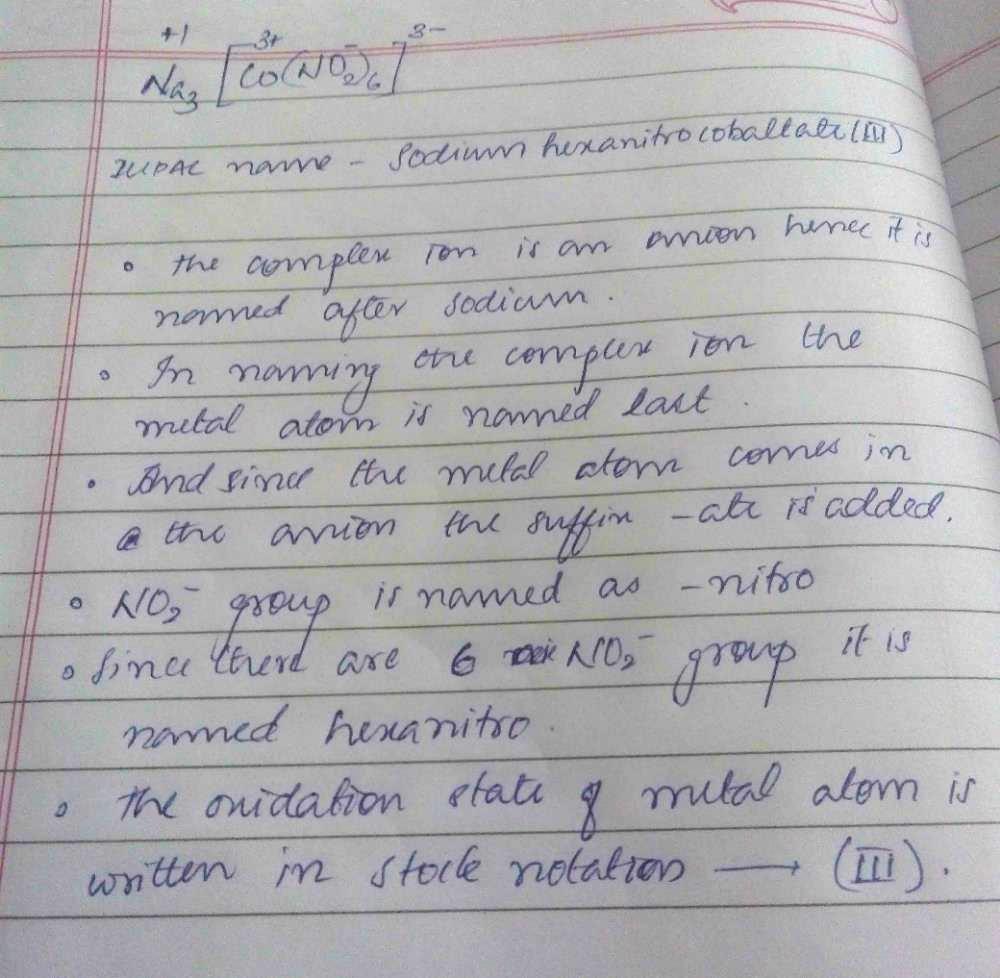 +1 3+ - 3-
Na3 [Co(NO2)6]
IUPAC name - Sodium hexanitrocobaltate (III)
• the complex ion is an anion hence it is
named after sodium.
• In naming the complex ion the
metal atom is named last.
• And since the metal atom comes in
the anion the suffix -ate is added.
• NO2- group is named as -nitro
• Since there are 6 NO2- group it is
named hexanitro.
• The oxidation state of metal atom is
written in stock notation → (III).